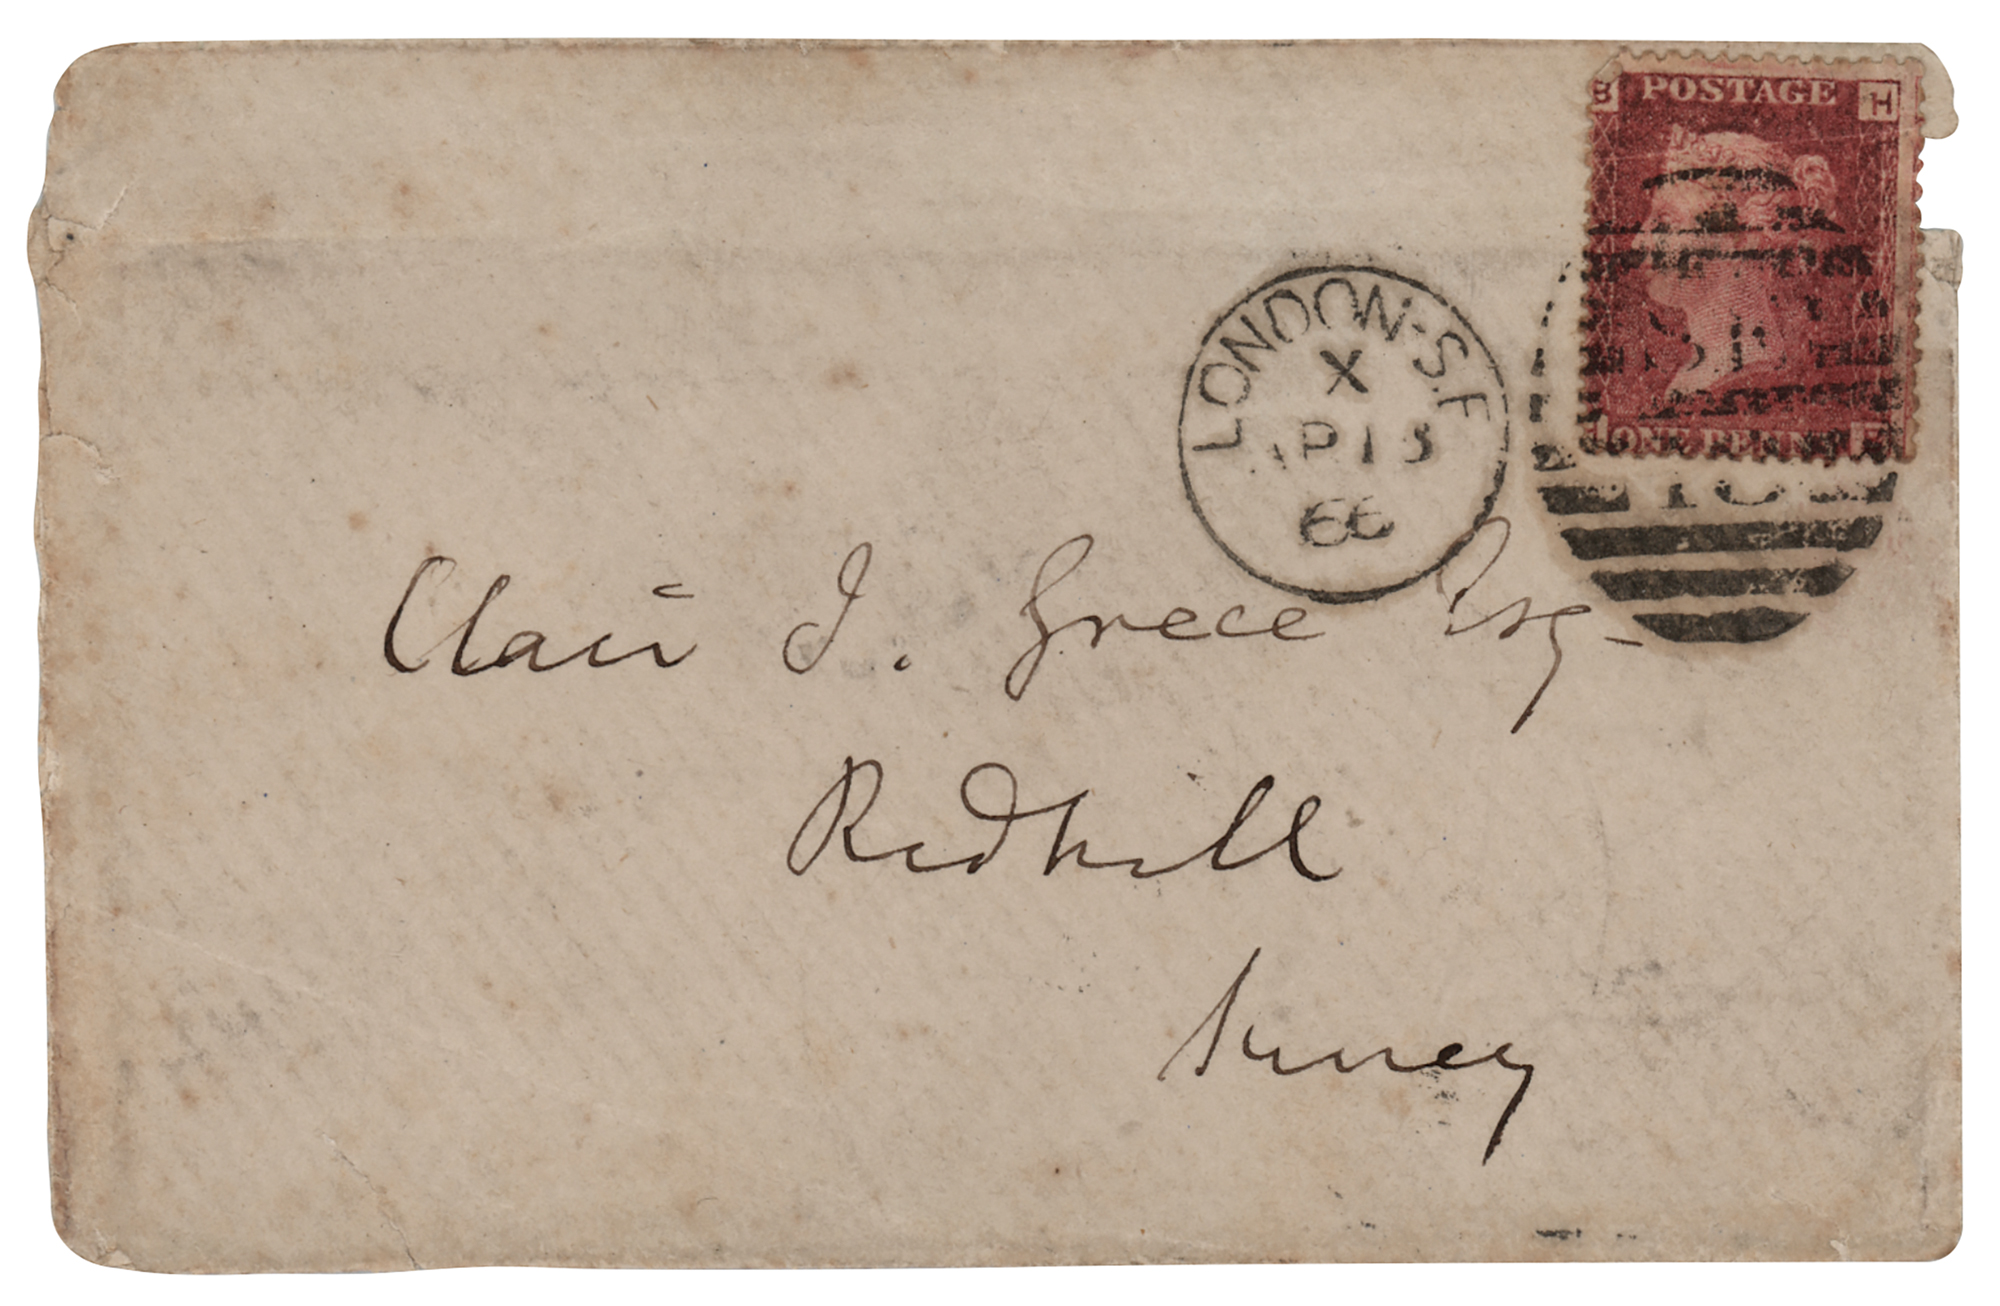 B POSTAGE H
ONE PENNY
LONDON-S.E
X
AP 13
66
Clair J. Grece Esq-
Redhill
Surrey